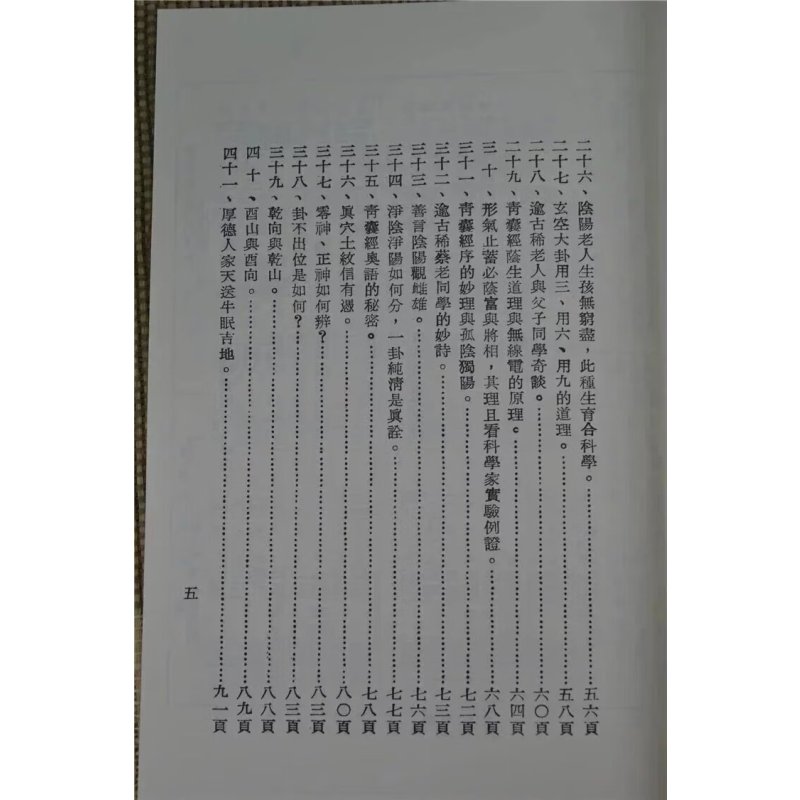 二十六、陰陽老人生孩無窮盡，此種生育合科學。……五六頁
二十七、玄空大卦用三、用六、用九的道理。……五八頁
二十八、逾古稀老人與父子同學奇談。……六〇頁
二十九、青囊經蔭生道理與無線電的原理。……六四頁
三十、形氣止蓄必蔭富與將相，其理且看科學家實驗例證。……六八頁
三十一、青囊經序的妙理與孤陰獨陽。……七二頁
三十二、逾古稀蔡老同學的妙詩。……七三頁
三十三、善言陰陽觀雌雄。……七六頁
三十四、淨陰淨陽如何分，一卦純清是眞詮。……七七頁
三十五、青囊經奧語的秘密。……七八頁
三十六、眞穴土紋信有憑。……八〇頁
三十七、零神、正神如何辨？……八三頁
三十八、卦不出位是如何？……八三頁
三十九、乾向與乾山。……八八頁
四十、酉山與酉向。……八九頁
四十一、厚德人家天送牛眠吉地。……九一頁
五